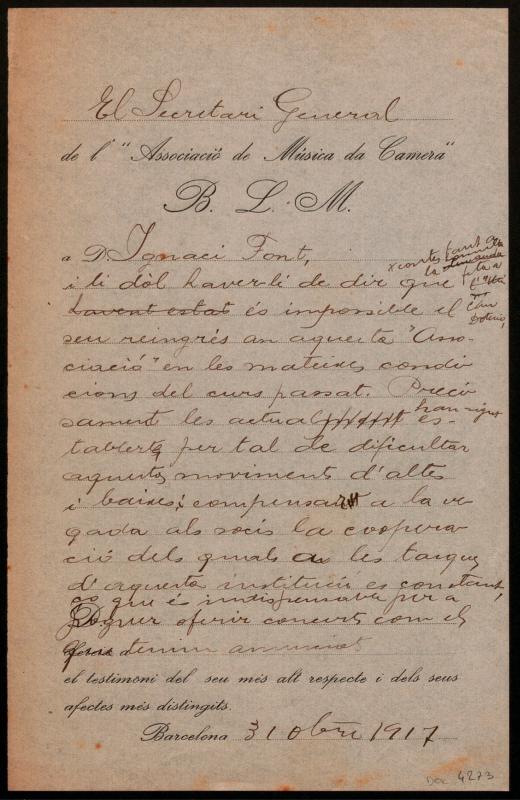 El Secretari General
de l' "Associació de Música da Camera"
B. L. M.
a D. Ignaci Font,
i li dòl haver-li de dir que
havent estat és impossible el
seu reingrés an aquesta "Asso-
ciació" en les mateixes condi
cions del curs passat. Preci
sament les actuals han sigut es-
tablertes per tal de dificultar
aquestos moviments d'altes
i baixes; compensant a la ve-
gada als socis la coopera-
ció dels quals a les tasques
d'aquesta institució es constant,
ço que és indispensable per a
poguer oferir concerts com els
que tenim anunciat
el testimoni del seu més alt respecte i dels seus
afectes més distingits.
Barcelona 31 obre 1917
Doc 4273